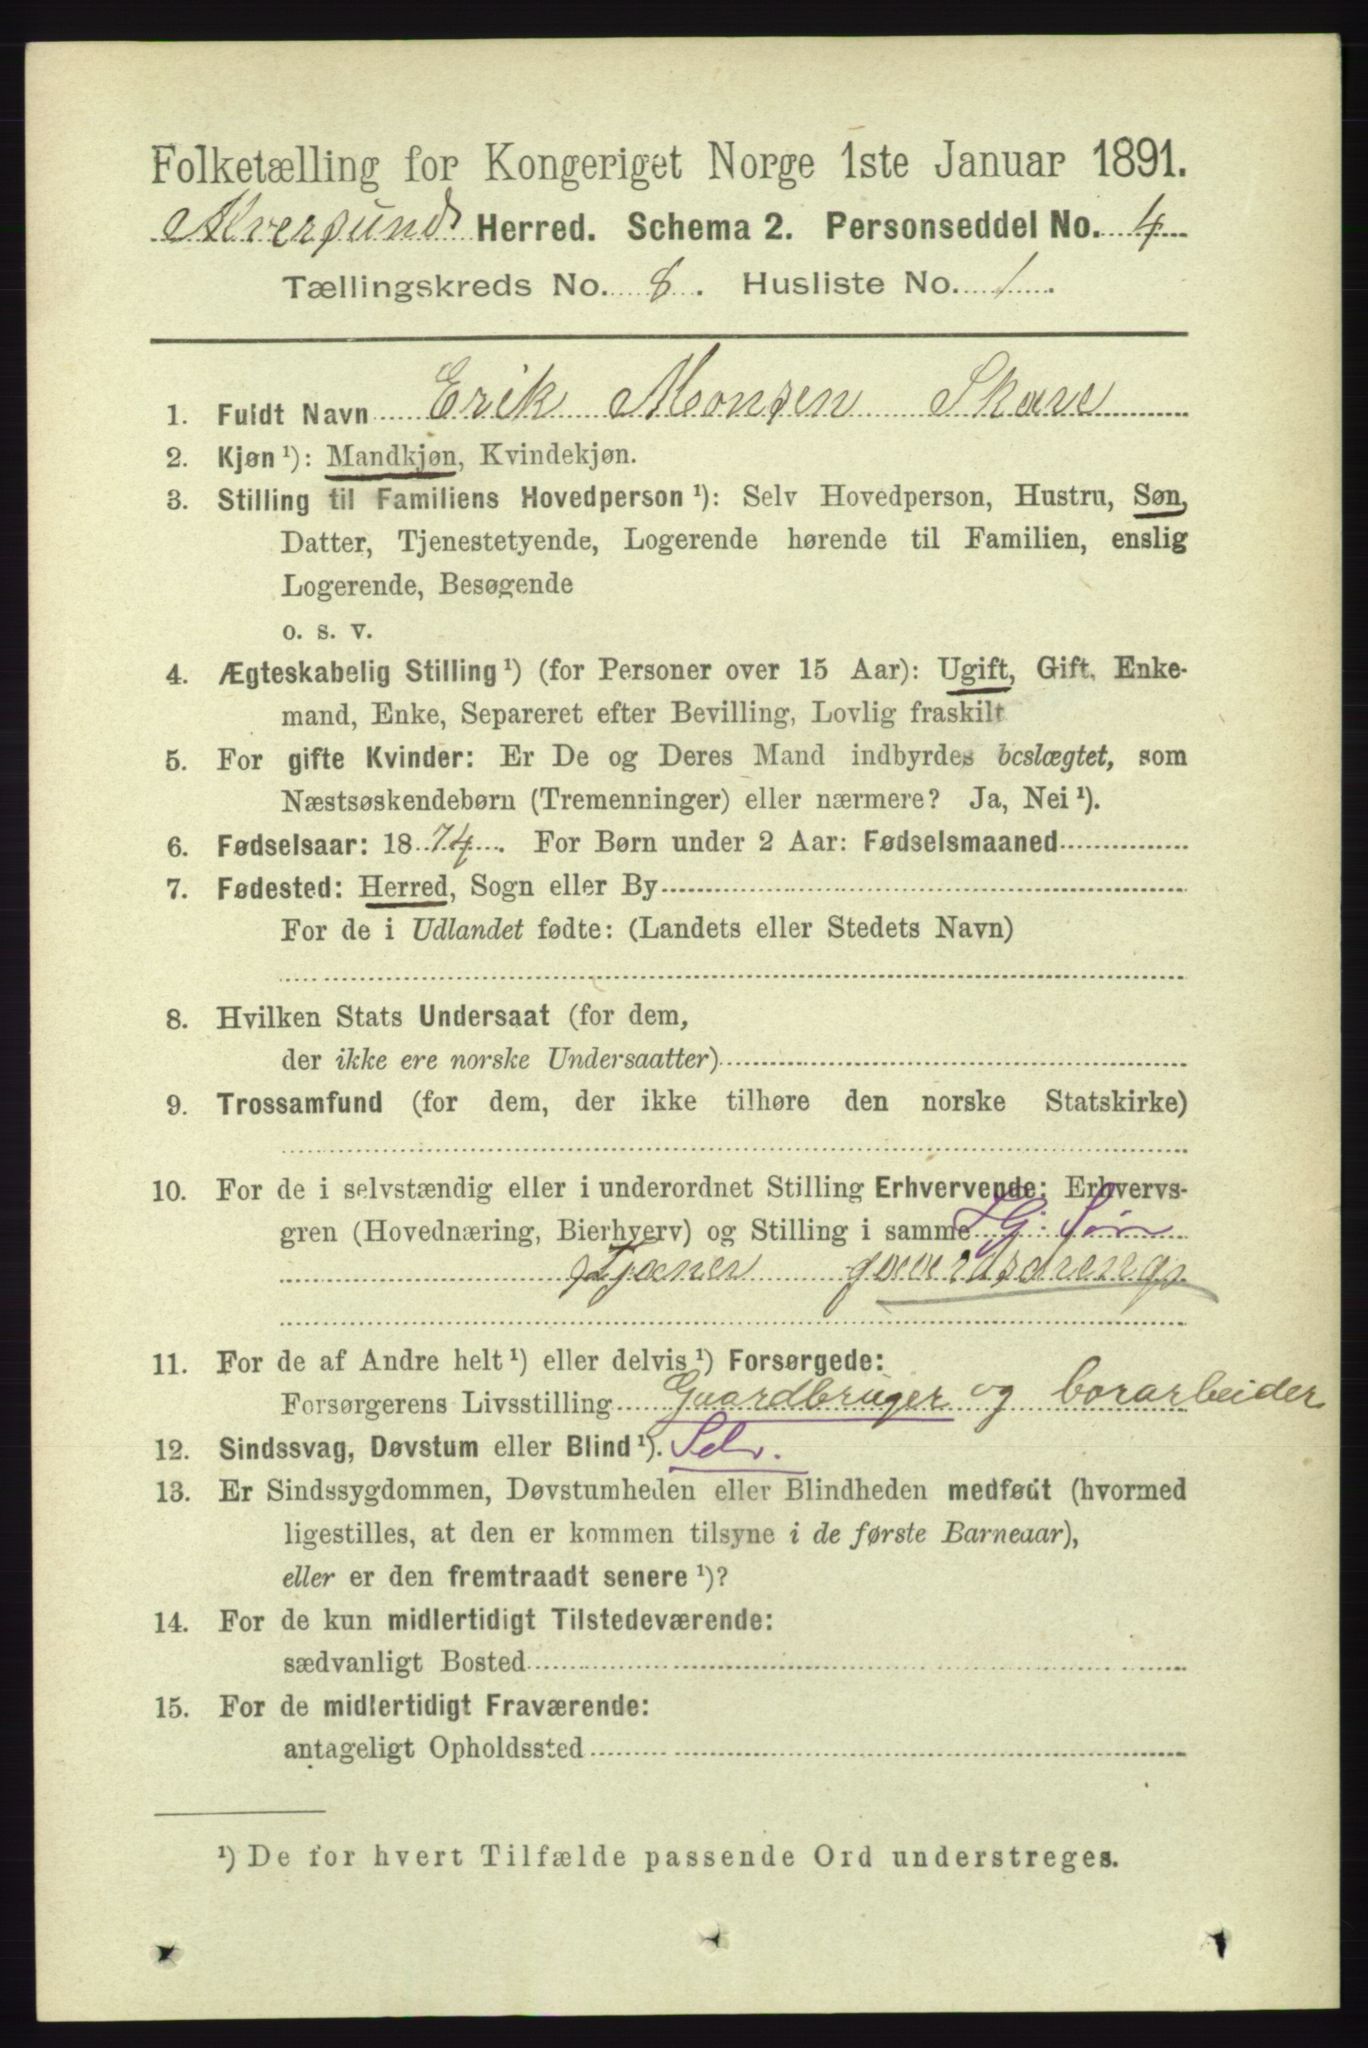 Folketælling for Kongeriget Norge 1ste Januar 1891.
Alversunds Herred. Schema 2. Personseddel No. 4
Tællingskreds No. 8. Husliste No. 1.
1. Fuldt Navn Erik Monsen Skare
2. Kjøn ¹): Mandkjøn, Kvindekjøn.
3. Stilling til Familiens Hovedperson ¹): Selv Hovedperson, Hustru, Søn,
Datter, Tjenestetyende, Logerende hørende til Familien, enslig
Logerende, Besøgende
o. s. v.
4. Ægteskabelig Stilling ¹) (for Personer over 15 Aar): Ugift, Gift, Enke-
mand, Enke, Separeret efter Bevilling, Lovlig fraskilt
5. For gifte Kvinder: Er De og Deres Mand indbyrdes beslægtet, som
Næstsøskendebørn (Tremenninger) eller nærmere? Ja, Nei ¹).
6. Fødselsaar: 1874. For Børn under 2 Aar: Fødselsmaaned
7. Fødested: Herred, Sogn eller By
For de i Udlandet fødte: (Landets eller Stedets Navn)
8. Hvilken Stats Undersaat (for dem,
der ikke ere norske Undersaatter)
9. Trossamfund (for dem, der ikke tilhøre den norske Statskirke)
10. For de i selvstændig eller i underordnet Stilling Erhvervende: Erhvervs-
gren (Hovednæring, Bierhverv) og Stilling i samme G. Søn
Tjener gaardsdreng
11. For de af Andre helt ¹) eller delvis ¹) Forsørgede:
Forsørgerens Livsstilling Gaardbruger og borarbeider
12. Sindssvag, Døvstum eller Blind ¹). Selv.
13. Er Sindssygdommen, Døvstumheden eller Blindheden medfødt (hvormed
ligestilles, at den er kommen tilsyne i de første Barneaar),
eller er den fremtraadt senere ¹)?
14. For de kun midlertidigt Tilstedeværende:
sædvanligt Bosted
15. For de midlertidigt Fraværende:
antageligt Opholdssted
¹) De for hvert Tilfælde passende Ord understreges.